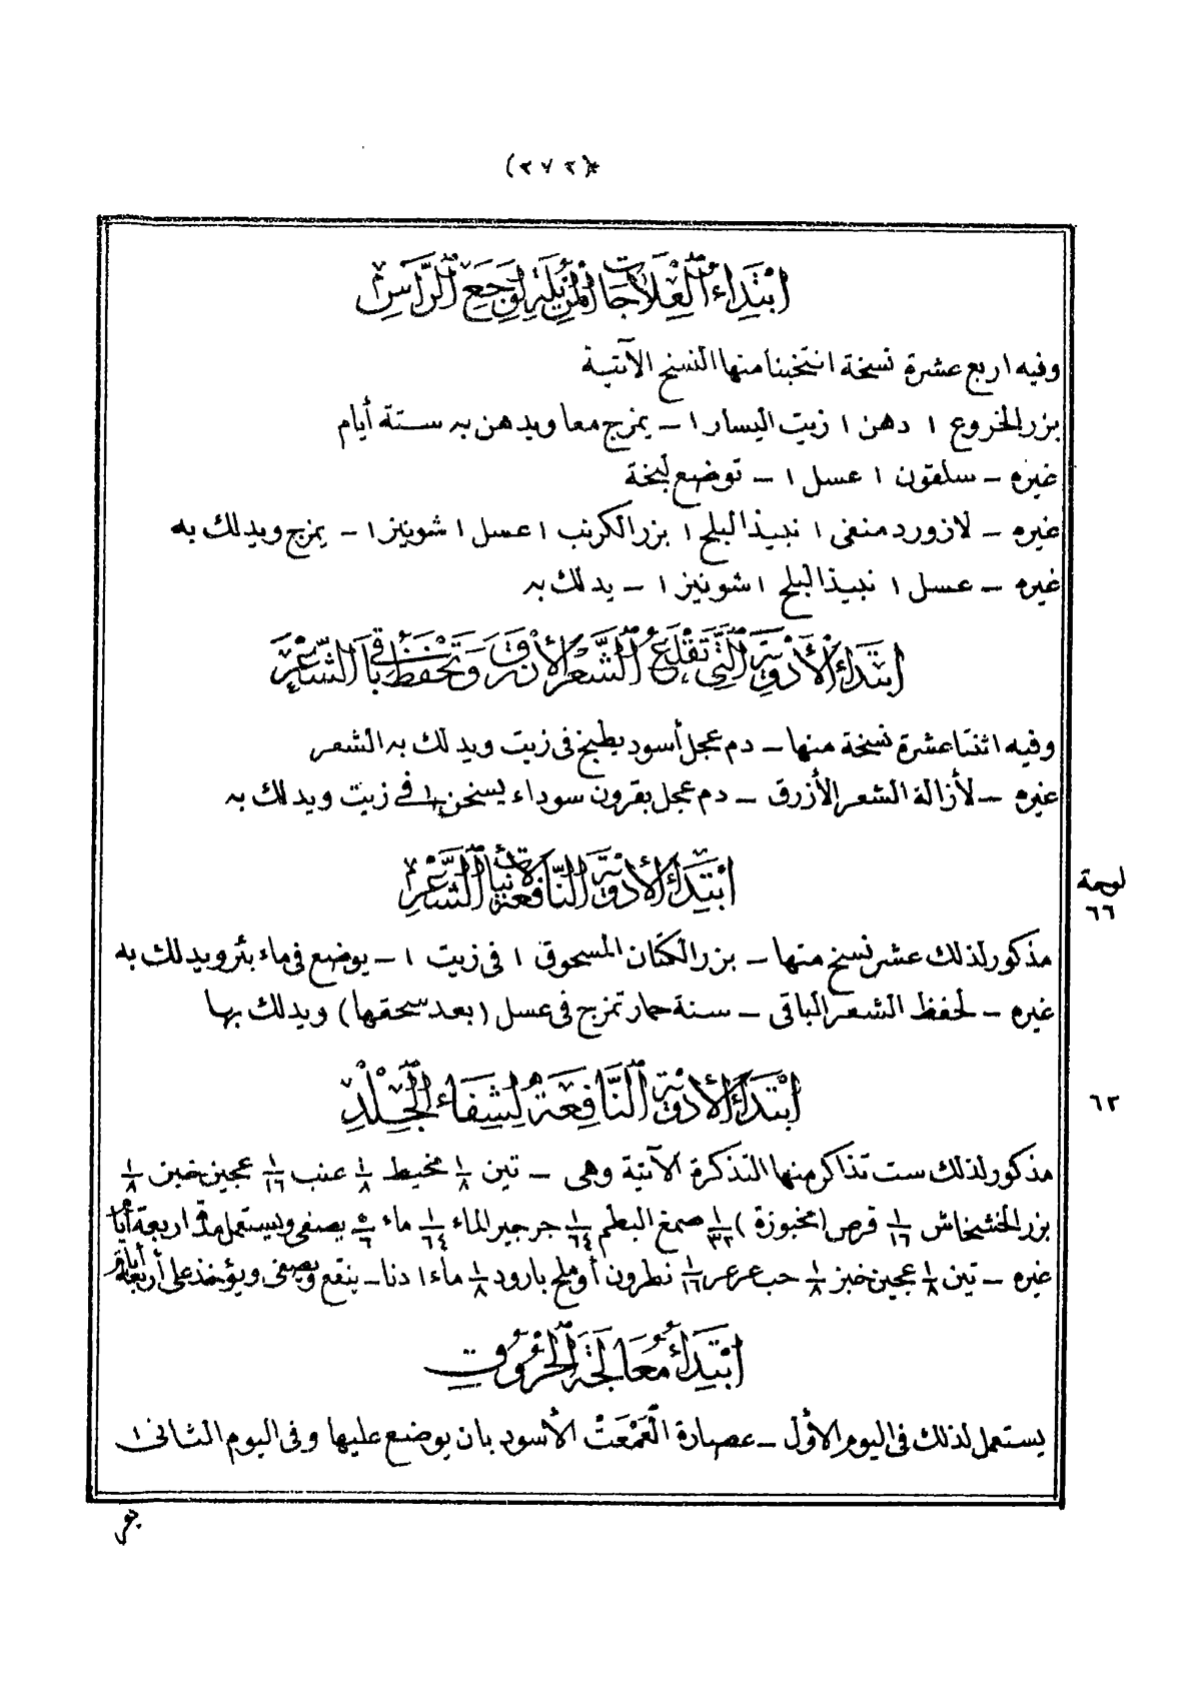 (٢٧٢)
ابْتِدَاءُ الْعِلَاجَاتِ الْمُزِيلَةِ لِوَجَعِ الرَّأْسِ
وفيه اربع عشرة نسخة انتخبنا منها النسخ الآتية
بزر الخروع ١ دهن ١ زيت اليسار ١ – يمزج معا ويدهن به ستة أيام
غيره – سلقون ١ عسل ١ – توضع لبخة
غيره – لازورد منقى ١ نبيذ البلح ١ بزر الكرنب ١ عسل ١ شونيز ١ – يمزج ويدلك به
غيره – عسل ١ نبيذ البلح ١ شونيز ١ – يدلك به
ابْتِدَاءُ الْأَدْوِيَةِ الَّتِي تَقْلَعُ الشَّعْرَ الْأَزْرَقَ وَتَحْفَظُ بَاقِي الشَّعْرِ
وفيه اثنتا عشرة نسخة منها – دم عجل أسود يطبخ فى زيت ويدلك به الشعر
غيره – لأزالة الشعر الأزرق – دم عجل بقرون سوداء يسخن ١ فى زيت ويدلك به
ابْتِدَاءُ الْأَدْوِيَةِ النَّافِعَةِ لِإِنْبَاتِ الشَّعْرِ
لوحة
٦٦
مذكور لذلك عشر نسخ منها – بزر الكتان المسحوق ١ فى زيت ١ – يوضع فى ماء بئر ويدلك به
غيره – لحفظ الشعر الباقى – سنة حمار تمزج فى عسل (بعد سحقها) ويدلك بها
ابْتِدَاءُ الْأَدْوِيَةِ النَّافِعَةِ لِشِفَاءِ الْجِلْدِ
٦٢
مذكور لذلك ست تذاكر منها التذكرة الآتية وهى – تين ١/٨ مخيط ١/٨ عنب ١/١٦ عجين خبز ١/٨
بزر الخشخاش ١/١٦ قرص (مخبوزة) ١/٣٢ صمغ البطم ١/٦٤ جرجير الماء ١/٦٤ ماء ٥/٦ يصفى ويستعمل مدة اربعة أيام
غيره – تين ١/٨ عجين خبز ١/٨ حب عرعر ١/١٦ نطرون أو ملح بارود ١/٨ ماء ١ دنا – ينقع ويصفى ويؤخذ على أربعة أيام
ابْتِدَاءُ مُعَالَجَةِ الْحُرُوقِ
يستعمل لذلك فى اليوم الأول – عصارة الْعَمْعَتْ الأسود بان يوضع عليها وفى اليوم الثانى ١